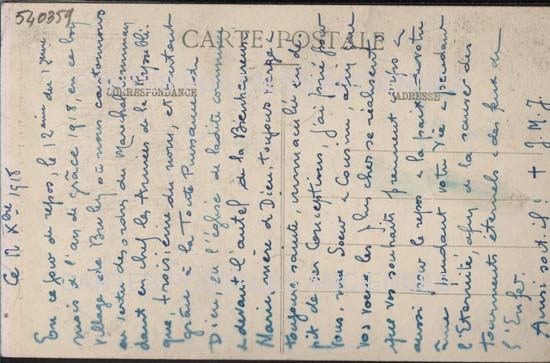 540359
CARTE POSTALE
CORRESPONDANCE
ADRESSE
Ce 12 Xbre 1918
En ce jour de repos, le 12ème du 12ème
mois de l'an de grâce 1918, en ce bon
village de où nous cantonnons
en vertu des ordres du Maréchal commen
dant en chef les armées de la République
troisième du nom, et étant
grâce à la Toute Puissance de
Dieu, en l'église de ladite commune
devant l'autel de la Bienheureuse
Marie, mère de Dieu, toujours vierge
toujours sainte, immaculée en dé
pit de ses Conceptions, j'ai prié pour
vous, ma Soeur Cousine afin que
vos voeux les plus chers se réalisent
que vos souhaits prennent
aussi pour le repos la paix de votre
âme pendant votre vie pendant
l'Eternité afin de la sauver des
tourments éternels des feux de
l'Enfer.
Ainsi soit-il ! + J.M.J.